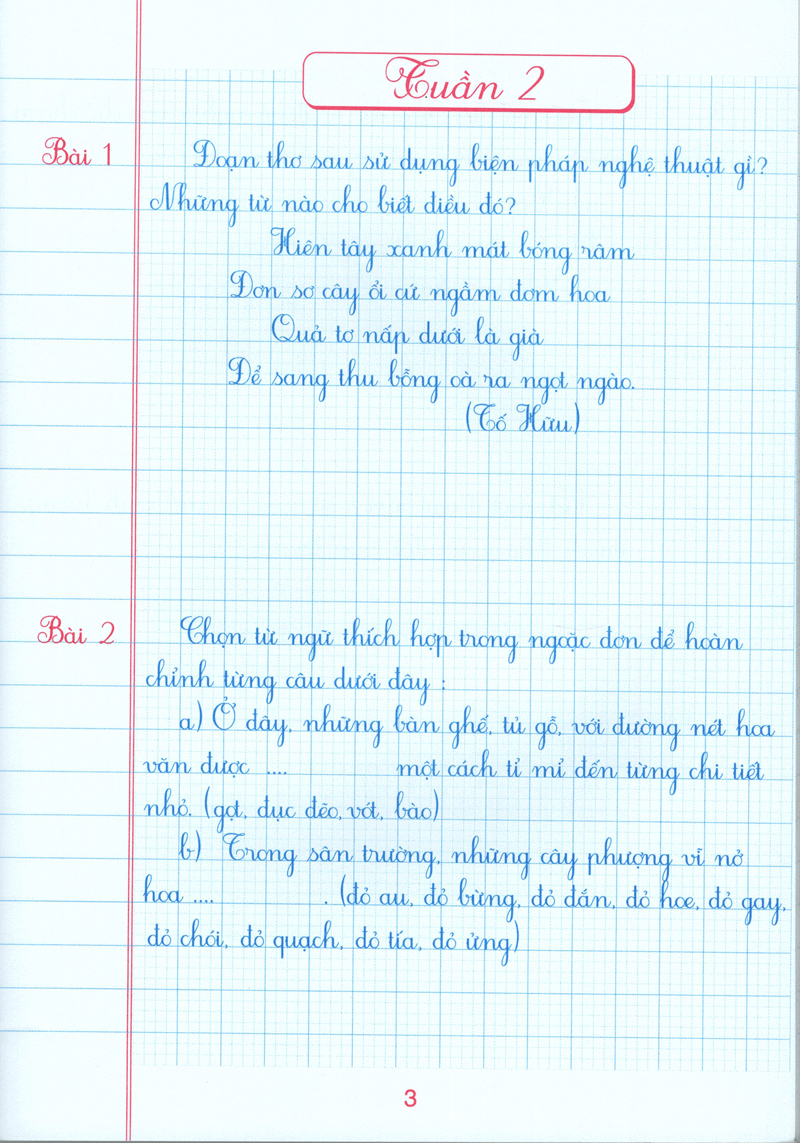 Tuần 2
Bài 1 Đoạn thơ sau sử dụng biện pháp nghệ thuật gì?
Những từ nào cho biết điều đó?
Hiên tây xanh mát bóng râm
Đơn sơ cây ổi cứ ngầm đơm hoa
Quả tơ nấp dưới là già
Để sang thu bỗng oà ra ngọt ngào.
(Tố Hữu)
Bài 2 Chọn từ ngữ thích hợp trong ngoặc đơn để hoàn
chỉnh từng câu dưới đây :
a) Ở đây, những bàn ghế, tủ gỗ, với đường nét hoa
văn được .... một cách tỉ mỉ đến từng chi tiết
nhỏ. (gọt, đục đẽo, vót, bào)
b) Trong sân trường, những cây phượng vĩ nở
hoa .... . (đỏ au, đỏ bừng, đỏ đắn, đỏ hoe, đỏ gay,
đỏ chói, đỏ quạch, đỏ tía, đỏ ửng)
3